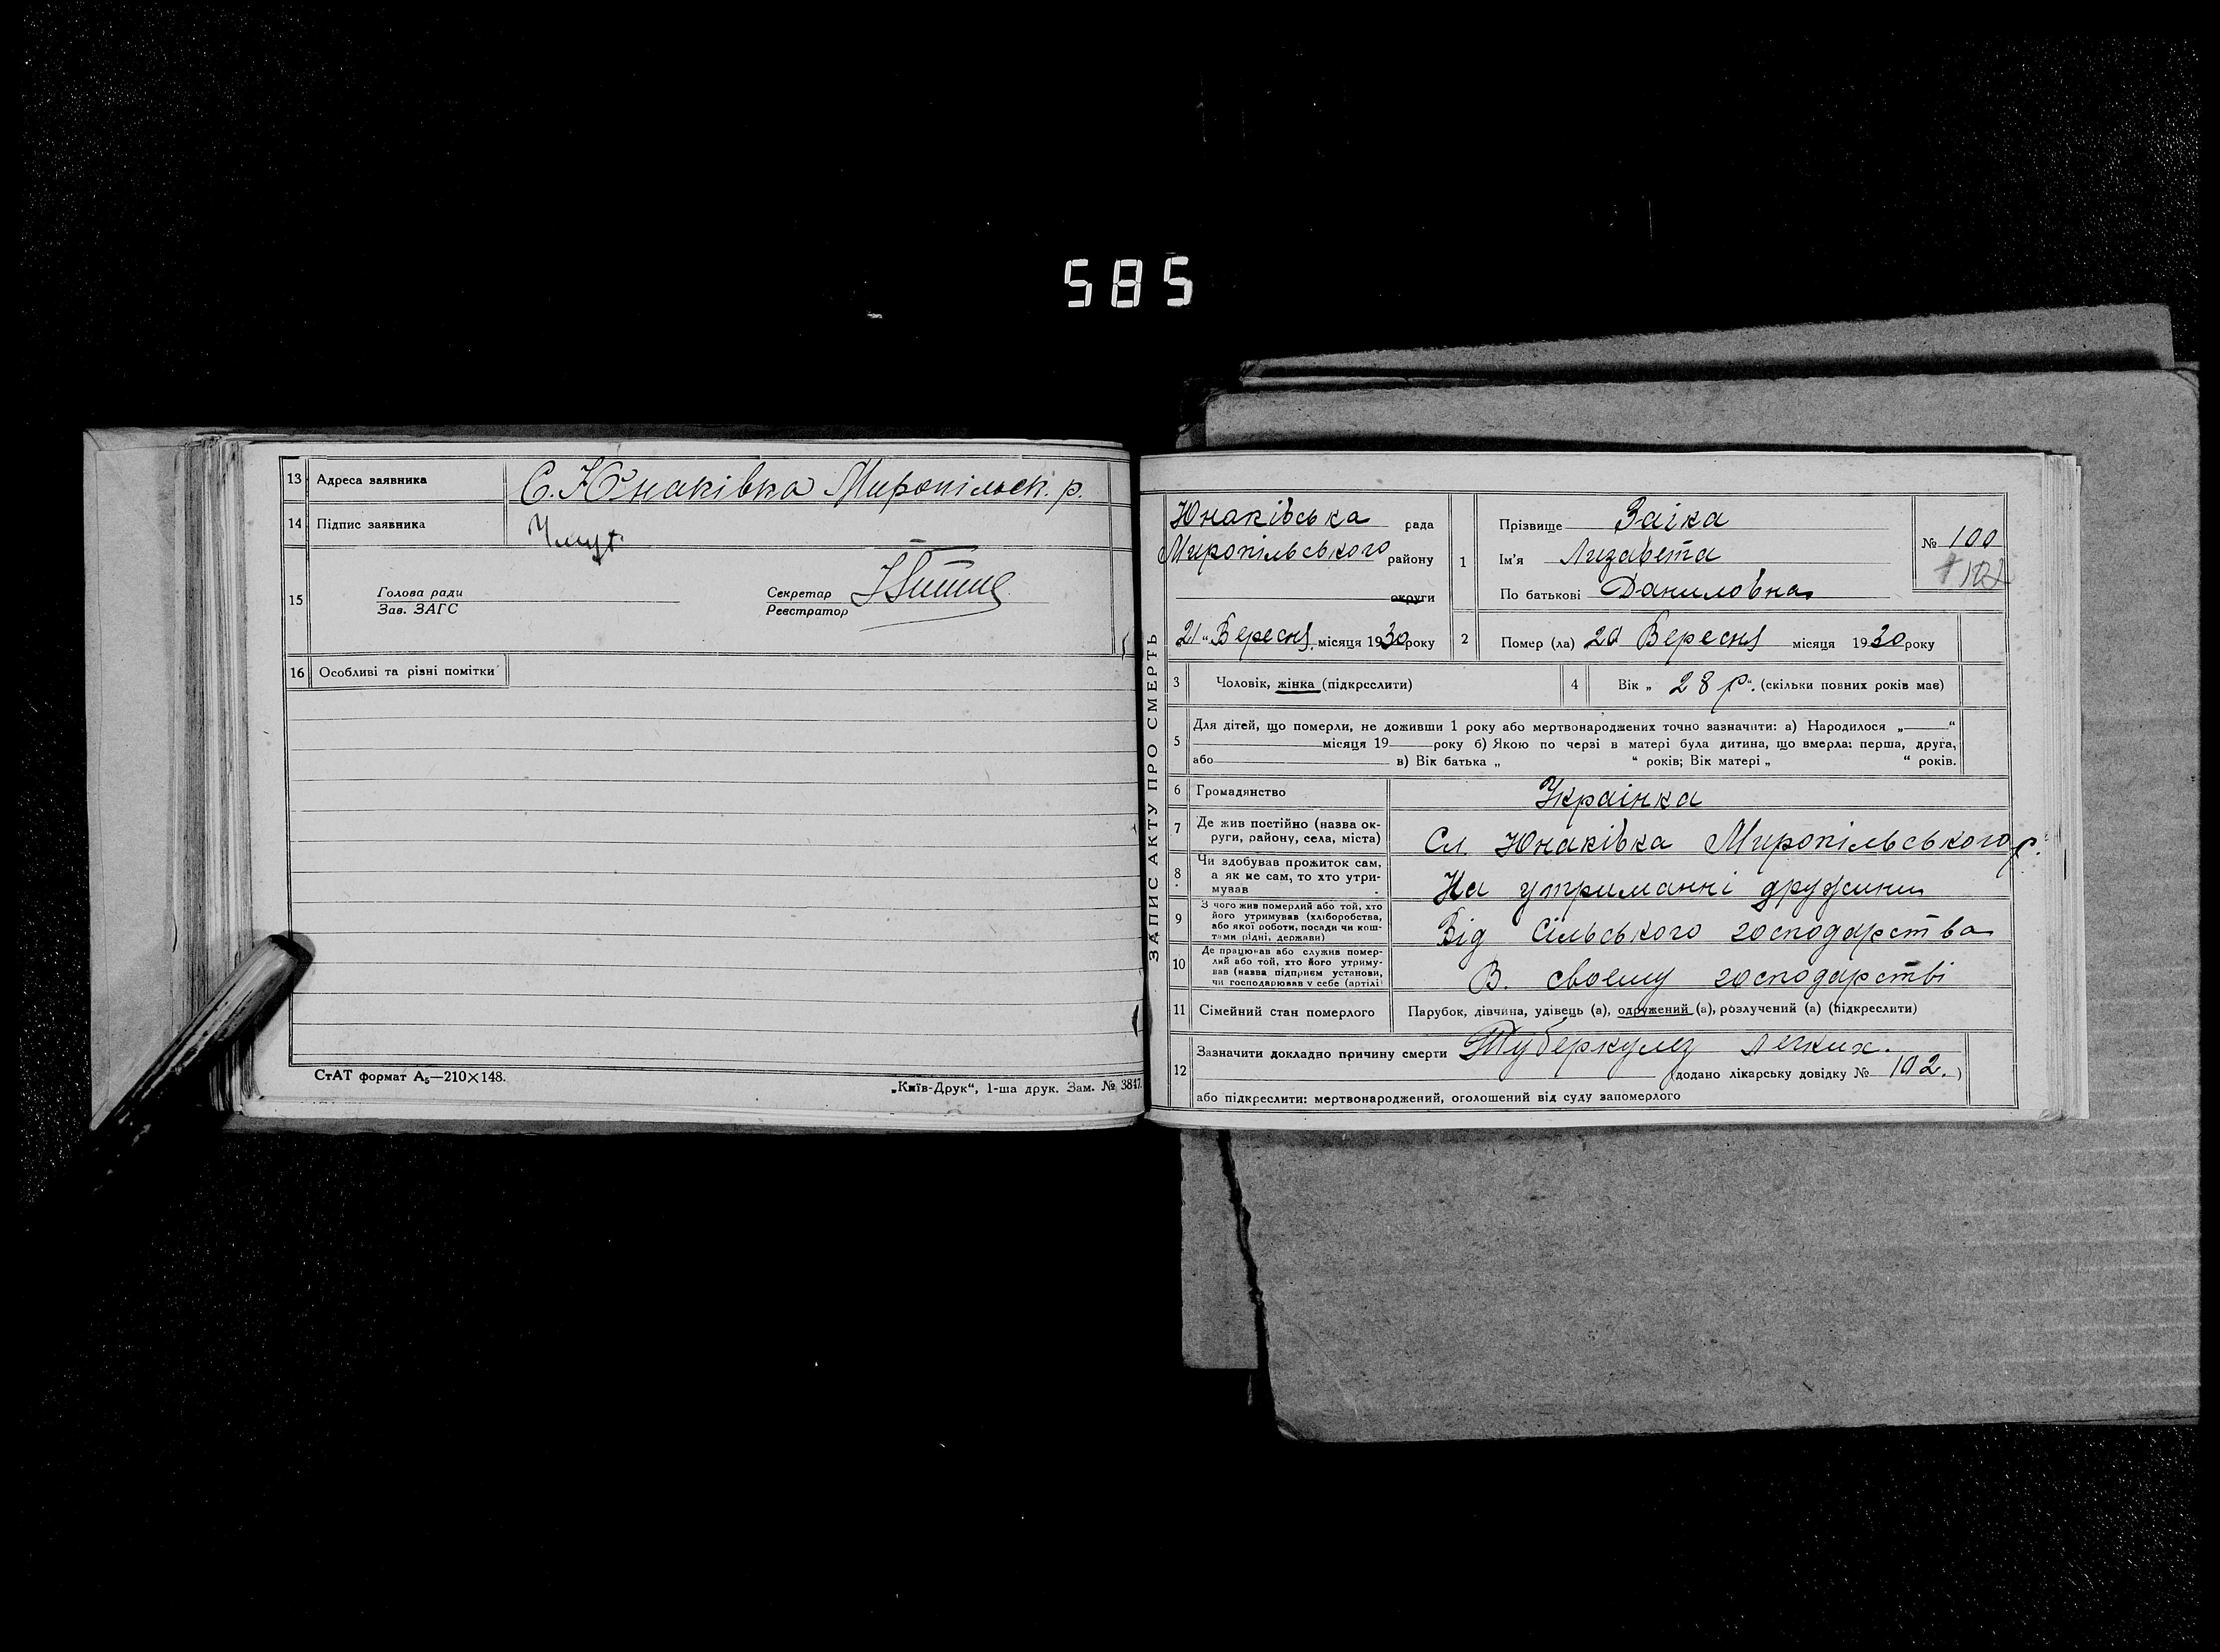 585
13 Адреса заявника С. Юнаківка Миропільск. р.
14 Підпис заявника
15 Голова ради
Зав. ЗАГС
Секретар
Реєстратор
16 Особливі та різні помітки
СтАТ формат А₅—210×148.
„Київ-Друк“, 1-ша друк. Зам. № 3847.
ЗАПИС АКТУ ПРО СМЕРТЬ
Юнаківська рада
Миропільського району
округи
„21“ Вересня місяця 1930 року
1 Прізвище Заіка
Ім'я Лизавета
По батькові Даниловна
№ 100
102
2 Помер (ла) 20 Вересня місяця 1930 року
3 Чоловік, жінка (підкреслити)
4 Вік „ 28 р“. (скільки повних років має)
5 Для дітей, що померли, не доживши 1 року або мертвонароджених точно зазначити: а) Народилося „ “
місяця 19 року б) Якою по черзі в матері була дитина, що вмерла: перша, друга,
або в) Вік батька „ “ років; Вік матері „ “ років.
6 Громадянство Украінка
7 Де жив постійно (назва ок-
руги, району, села, міста) Сл. Юнаківка Миропільського р.
8 Чи здобував прожиток сам,
а як не сам, то хто утри-
мував На утриманні дружини
9 З чого жив померлий або той, хто
його утримував (хліборобства,
або якої роботи, посади чи кош-
тами рідні, держави) Від Сільського господарства
10 Де працював або служив помер-
лий або той, хто його утриму-
вав (назва підприєм установи,
чи господарював у себе (артілі) В. своему господарстві
11 Сімейний стан померлого Парубок, дівчина, удівець (а), одружений (а), розлучений (а) (підкреслити)
12 Зазначити докладно причину смерти Туберкулез легких.
(додано лікарську довідку № 102.)
або підкреслити: мертвонароджений, оголошений від суду запомерлого